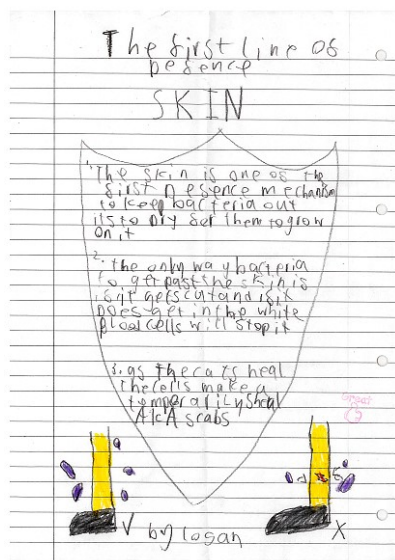 The first line of
Defence
SKIN
1. The skin is one of the
first Defence mechanism
to keep bacteria out
its to Dry for them to grow
on it
2. the only way bacteria
to get past the skin is
is it gets cut and if it
Does get in the white
blood cells will stop it
3. as the cats heal
the cells make a
temperarily sheal
AKA scabs
Great
V by logan X